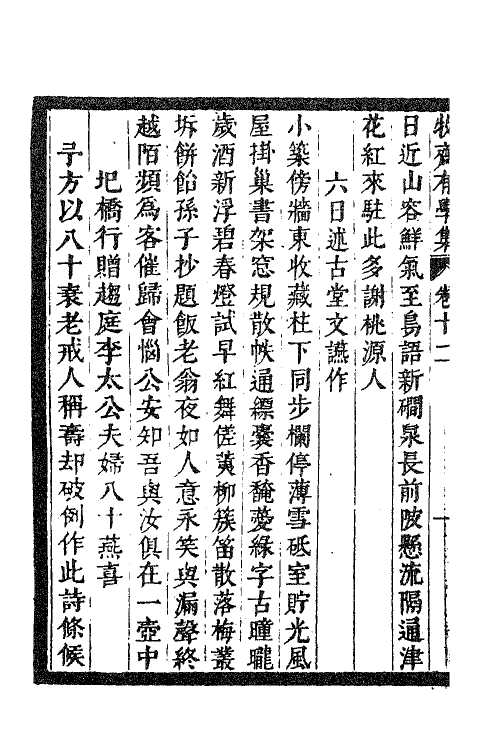 牧齋有學集 卷十二
日近山容鮮氣至鳥語新磵泉長前陂懸流隔通津
花紅來駐此多謝桃源人
六日述古堂文讌作
小築傍牆東收藏柱下同步欄停薄雪砥室貯光風
屋掛巢書架窓規散帙通縹囊香馣薆綠字古曈曨
歲酒新浮碧春燈試早紅舞傞黃柳簇笛散落梅叢
坼餅飴孫子抄題飯老翁夜如人意永笑與漏聲終
越陌頻爲客催歸會惱公安知吾與汝俱在一壺中
圯橋行贈趨庭李太公夫婦八十燕喜
予方以八十衰老戒人稱壽却破例作此詩條候